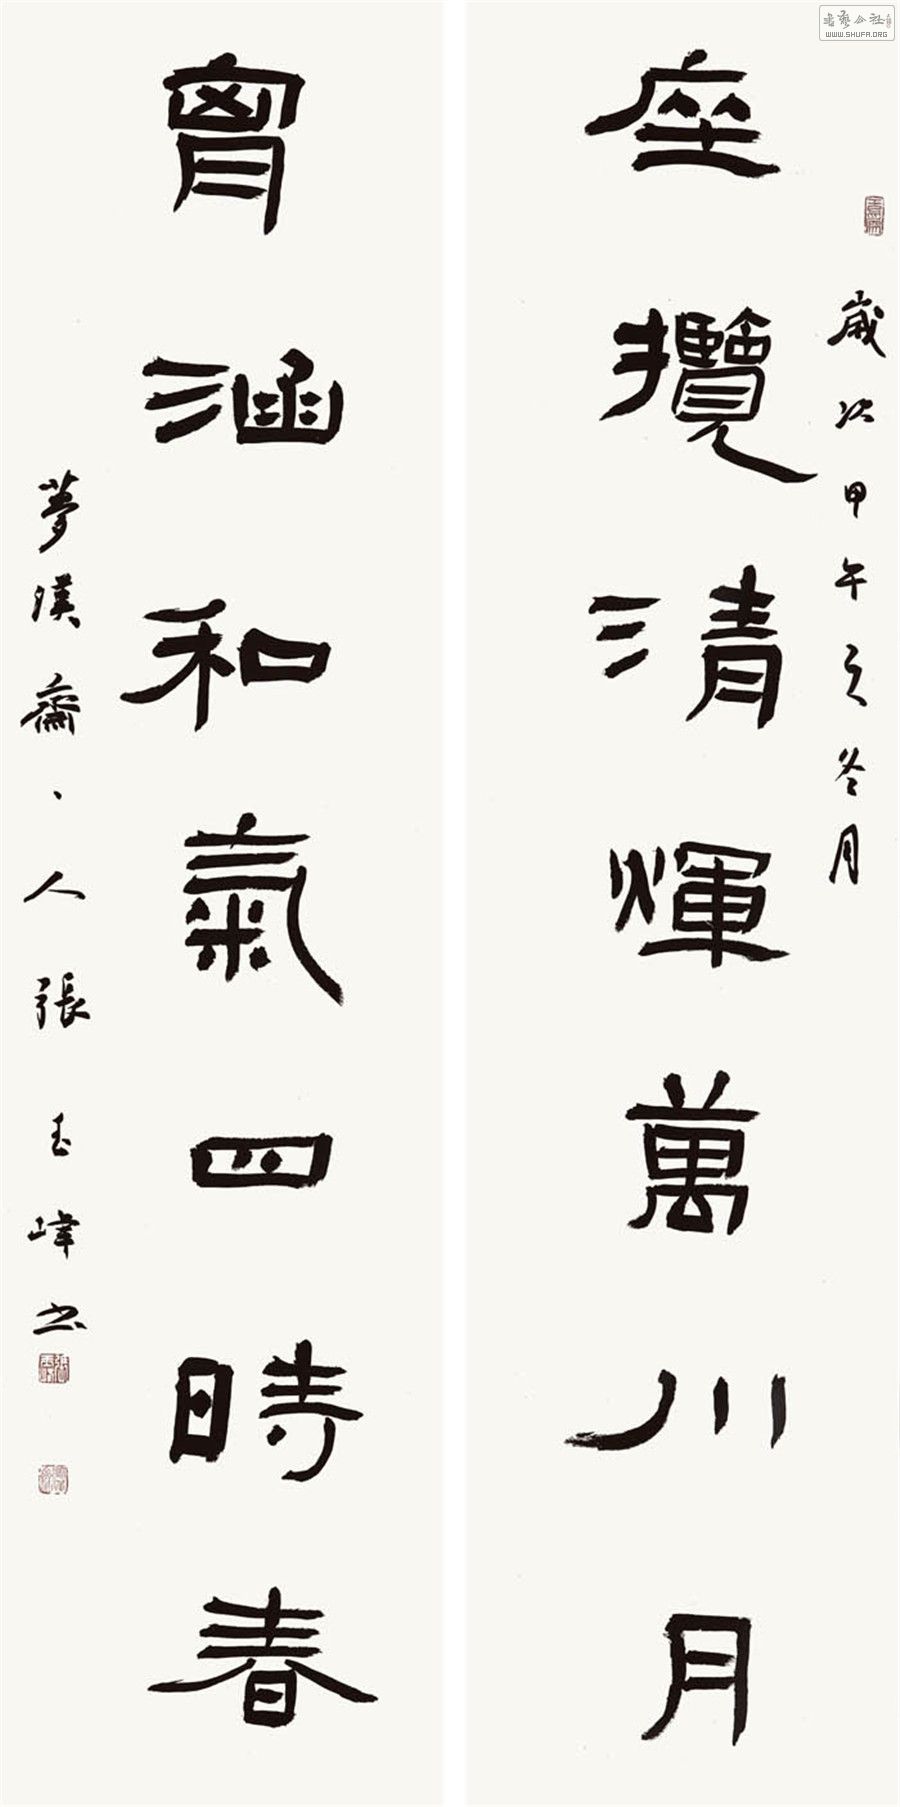 歲次甲午之冬月
座攬清煇萬川月
胷涵和氣四時春
夢漢齋主人張玉峰书
WWW.SHUFA.ORG